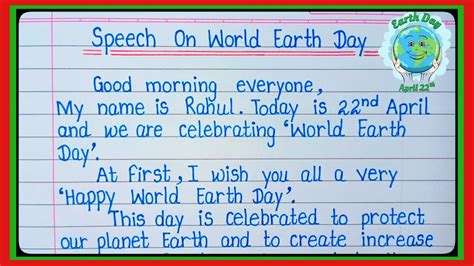 Earth Day
April 22th
Speech On World Earth Day
Good morning everyone,
My name is Rahul. Today is 22nd April
and we are celebrating 'World Earth
Day'.
At first, I wish you all a very
'Happy World Earth Day'.
This day is celebrated to protect
our planet Earth and to create increase